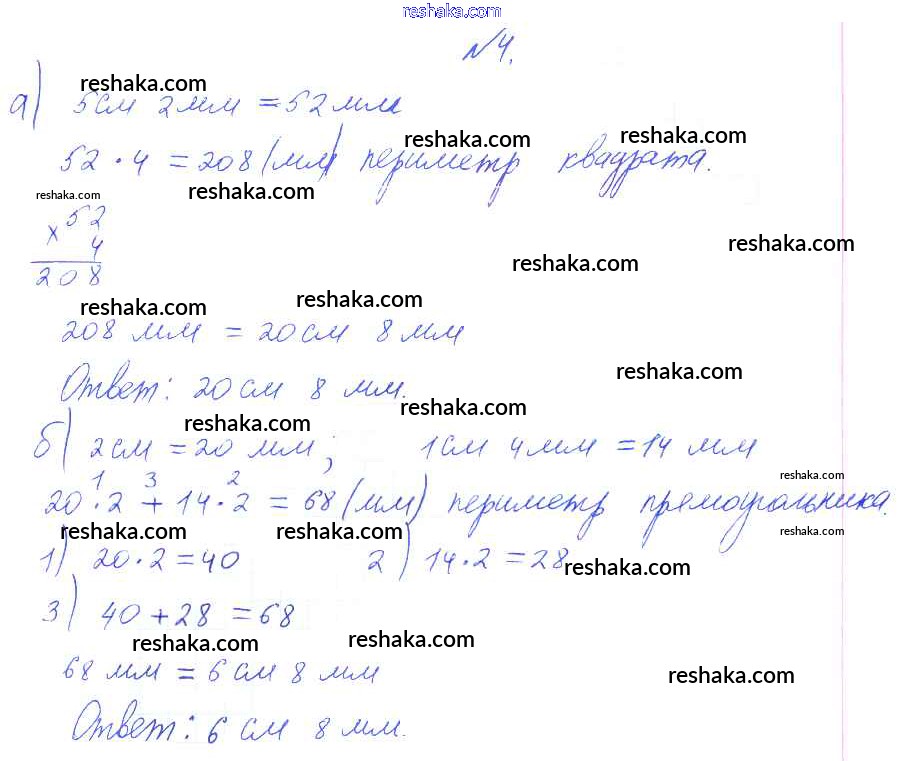 reshaka.com
№4.
reshaka.com
а) 5 см 2 мм = 52 мм
reshaka.com reshaka.com
52 · 4 = 208 (мм) периметр квадрата.
reshaka.com reshaka.com
× 52
4
208
reshaka.com
reshaka.com
reshaka.com reshaka.com
208 мм = 20 см 8 мм
reshaka.com
Ответ: 20 см 8 мм.
reshaka.com
reshaka.com
б) 2 см = 20 мм; 1 см 4 мм = 14 мм
reshaka.com
1 3 2
20 · 2 + 14 · 2 = 68 (мм) периметр прямоугольника.
reshaka.com reshaka.com reshaka.com
1) 20 · 2 = 40 2) 14 · 2 = 28
reshaka.com
3) 40 + 28 = 68
reshaka.com reshaka.com
68 мм = 6 см 8 мм
reshaka.com
Ответ: 6 см 8 мм.